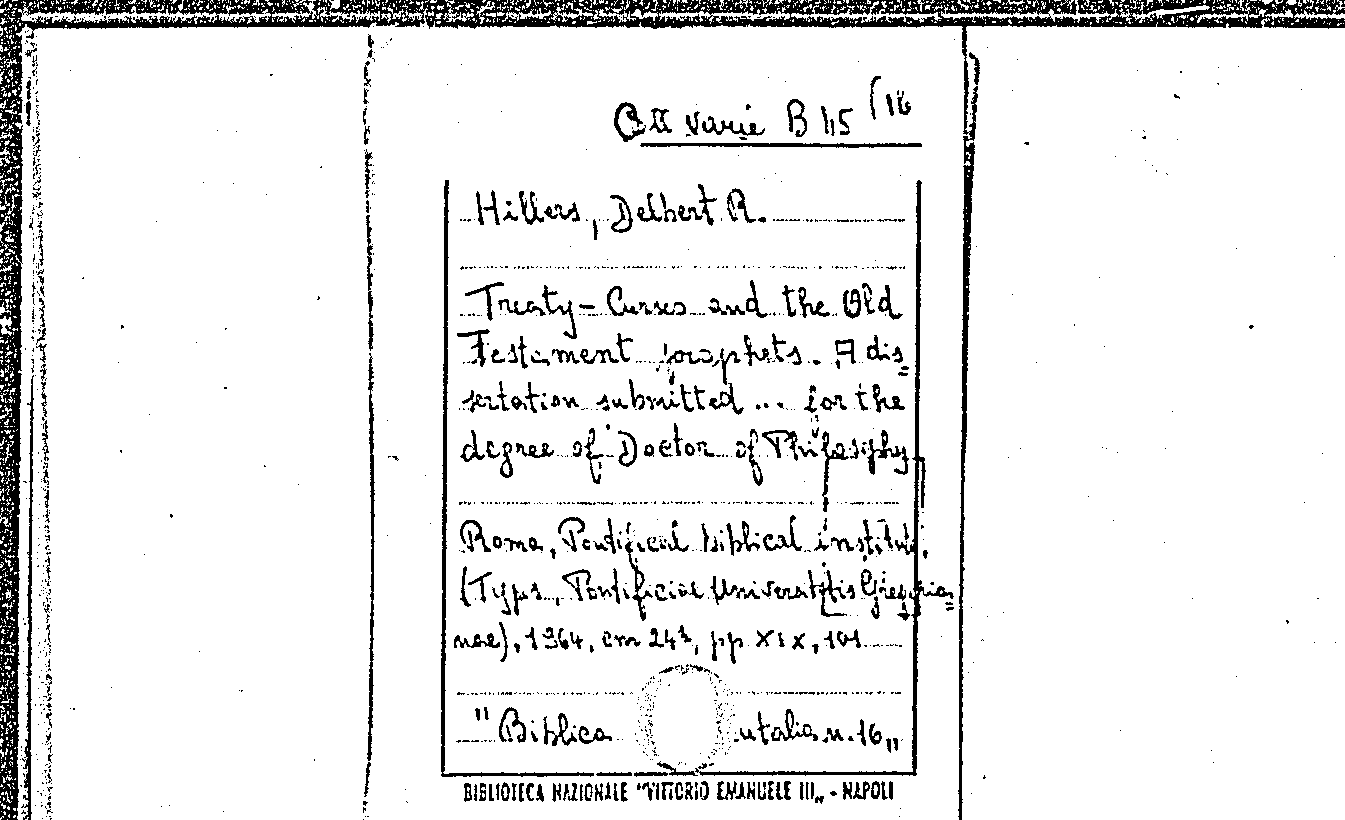 Coll varie B 45/16
Hillers, Delbert R.
Treaty-Curses and the Old
Testament prophets. A dis=
sertation submitted ... for the
degree of Doctor of Philosophy.
Roma, Pontifical biblical institut.
(Typs. Pontificiae Universitatis Gregoria=
nae), 1964, cm 24½, pp XIX, 101
"Biblica n. 16"
BIBLIOTECA NAZIONALE "VITTORIO EMANUELE III" - NAPOLI